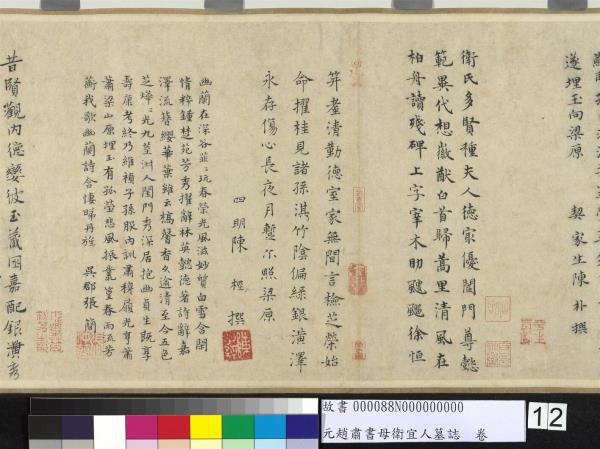 遂埋玉向梁原 契家生陳朴撰
衛氏多賢種夫人德寔優閨門尊懿
範異代想徽猷白首歸蒿里清風在
柏舟讀殘碑上字宰木助颼飀徐恒
笄耋清勤德室家無間言檢芝榮始
命擢桂見諸孫淇竹陰偏綠銀潢澤
永存傷心長夜月蹔尔照梁原
四明陳樫撰
幽蘭在深谷菲〻玩春榮光風滋妙質白雪含閒
情粹鍾楚苑芳秀擢辭林英懿德著詩辭嘉
澤流簪纓華葉雖云槁馨香久逾清至今五色
芝燁〻光九莖淵人閨門秀深居抱幽貞生既享
壽康考終乃維禎子孫服內訓肅穆顒光亨蕭
蕭梁山原埋玉有孤塋悲風振叢篁春雨流芳
蘅我歌幽蘭詩含悽睇丹旌 吳郡張簡
昔賢觀內德孌彼玉葳國嘉配銀潢秀
故書 000088N000000000
元趙肅書母衛宜人墓誌 卷
12